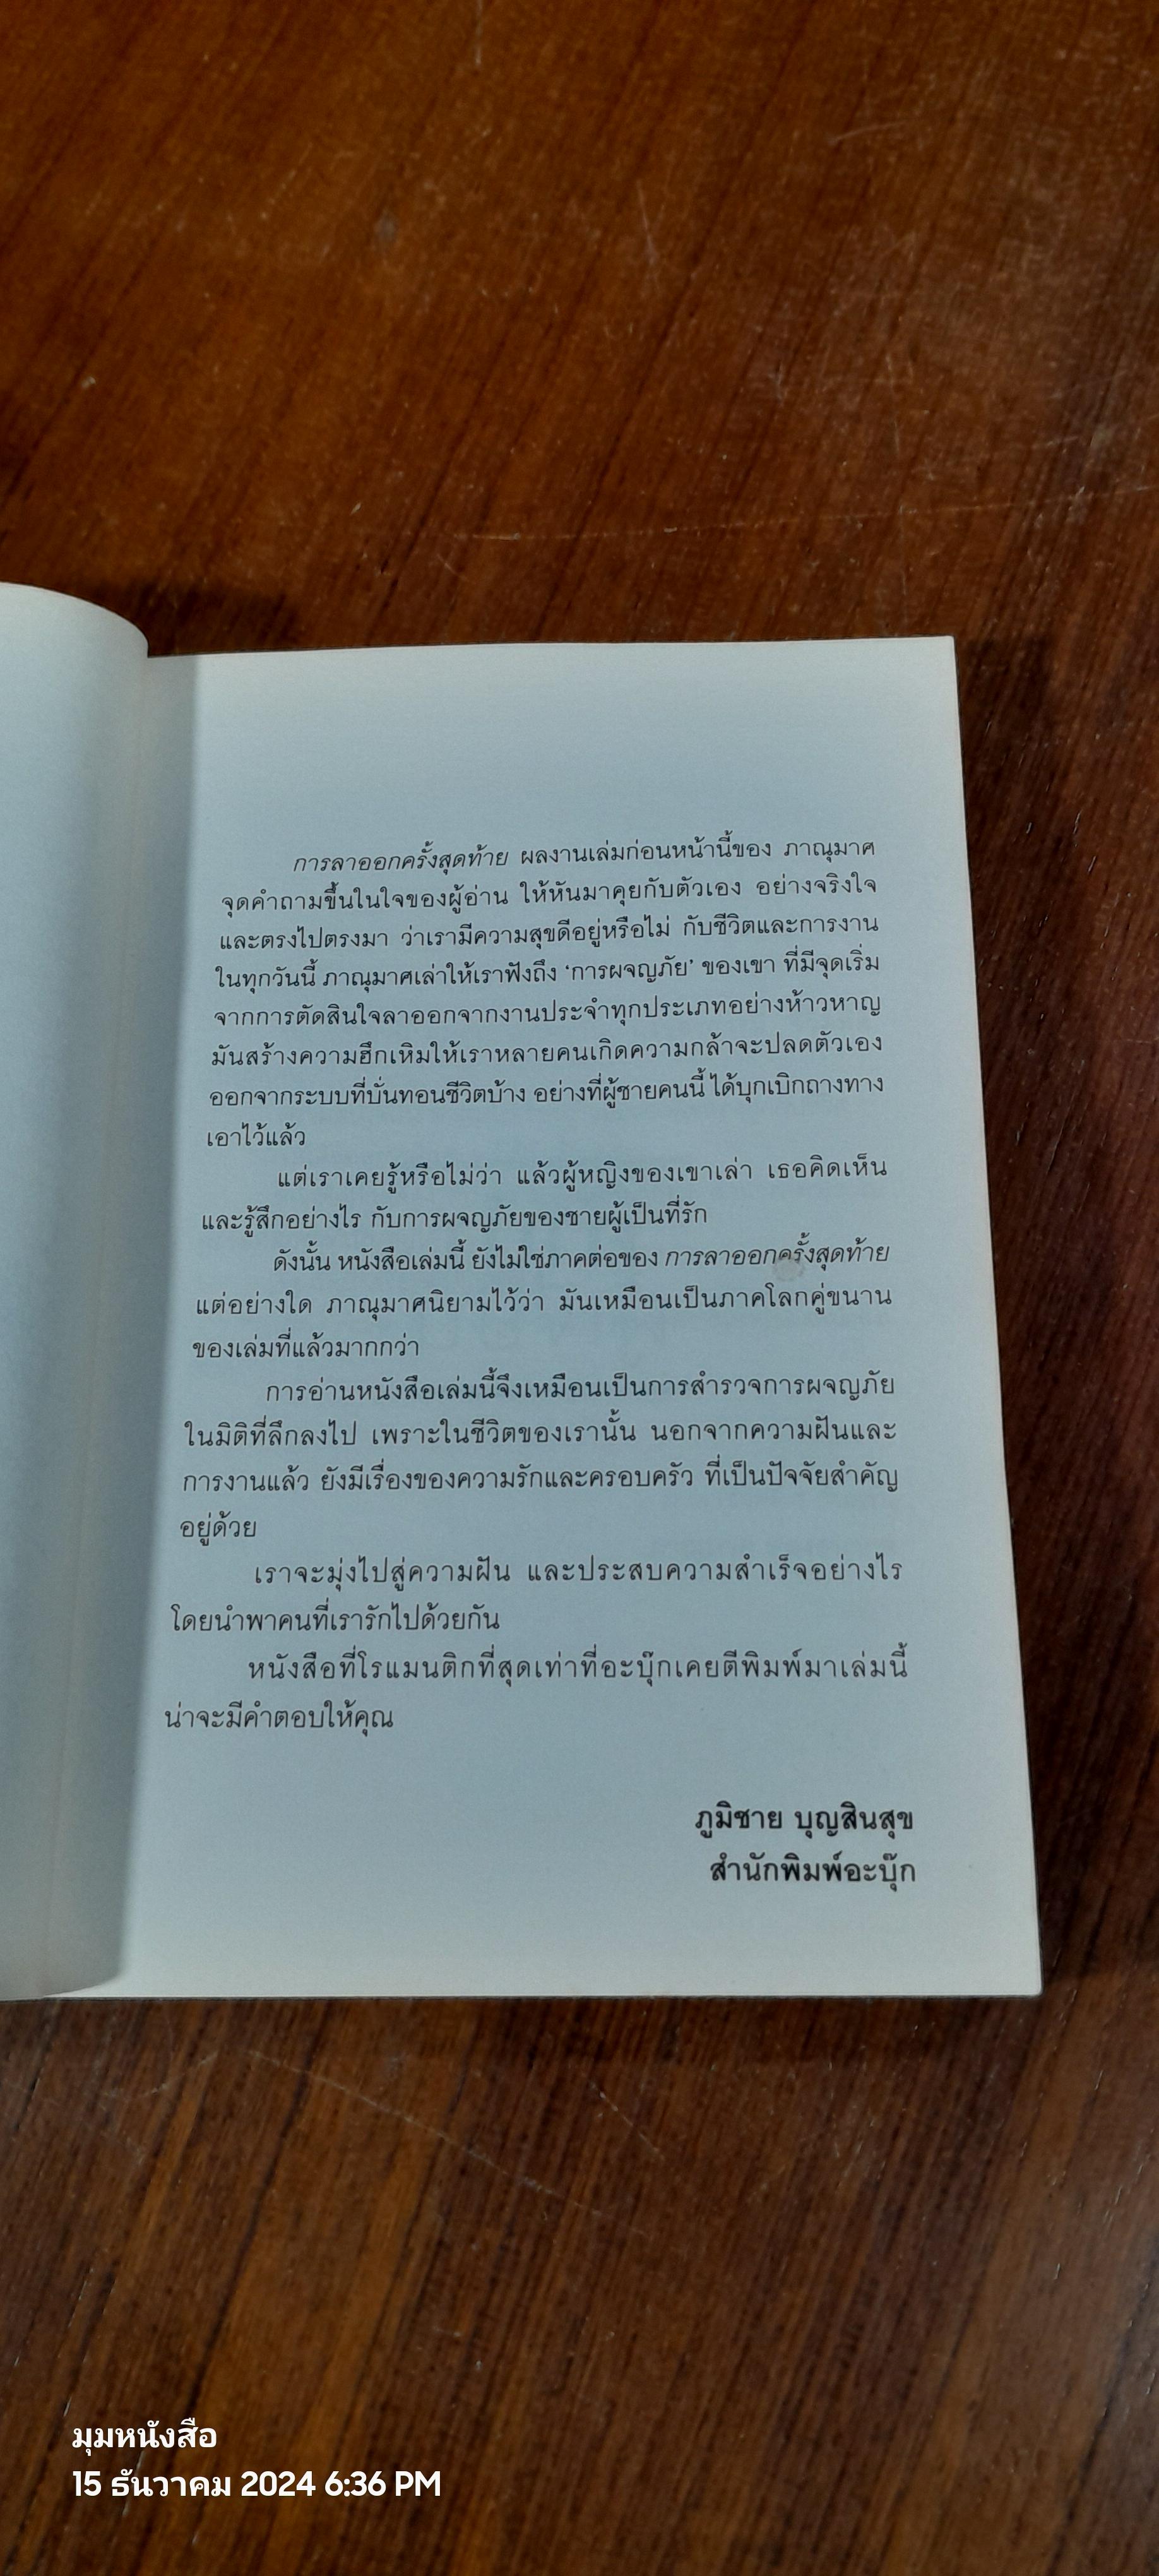 การลาออกครั้งสุดท้าย ผลงานเล่มก่อนหน้านี้ของ ภาณุมาศ
จุดคำถามขึ้นในใจของผู้อ่าน ให้หันมาคุยกับตัวเอง อย่างจริงใจ
และตรงไปตรงมา ว่าเรามีความสุขดีอยู่หรือไม่ กับชีวิตและการงาน
ในทุกวันนี้ ภาณุมาศเล่าให้เราฟังถึง ‘การผจญภัย’ ของเขา ที่มีจุดเริ่ม
จากการตัดสินใจลาออกจากงานประจำทุกประเภทอย่างห้าวหาญ
มันสร้างความฮึกเหิมให้เราหลายคนเกิดความกล้าจะปลดตัวเอง
ออกจากระบบที่บั่นทอนชีวิตบ้าง อย่างที่ผู้ชายคนนี้ ได้บุกเบิกถางทาง
เอาไว้แล้ว
แต่เราเคยรู้หรือไม่ว่า แล้วผู้หญิงของเขาเล่า เธอคิดเห็น
และรู้สึกอย่างไร กับการผจญภัยของชายผู้เป็นที่รัก
ดังนั้น หนังสือเล่มนี้ ยังไม่ใช่ภาคต่อของ การลาออกครั้งสุดท้าย
แต่อย่างใด ภาณุมาศนิยามไว้ว่า มันเหมือนเป็นภาคโลกคู่ขนาน
ของเล่มที่แล้วมากกว่า
การอ่านหนังสือเล่มนี้จึงเหมือนเป็นการสำรวจการผจญภัย
ในมิติที่ลึกลงไป เพราะในชีวิตของเรานั้น นอกจากความฝันและ
การงานแล้ว ยังมีเรื่องของความรักและครอบครัว ที่เป็นปัจจัยสำคัญ
อยู่ด้วย
เราจะมุ่งไปสู่ความฝัน และประสบความสำเร็จอย่างไร
โดยนำพาคนที่เรารักไปด้วยกัน
หนังสือที่โรแมนติกที่สุดเท่าที่อะบุ๊กเคยตีพิมพ์มาเล่มนี้
น่าจะมีคำตอบให้คุณ
ภูมิชาย บุญสินสุข
สำนักพิมพ์อะบุ๊ก
มุมหนังสือ
15 ธันวาคม 2024 6:36 PM